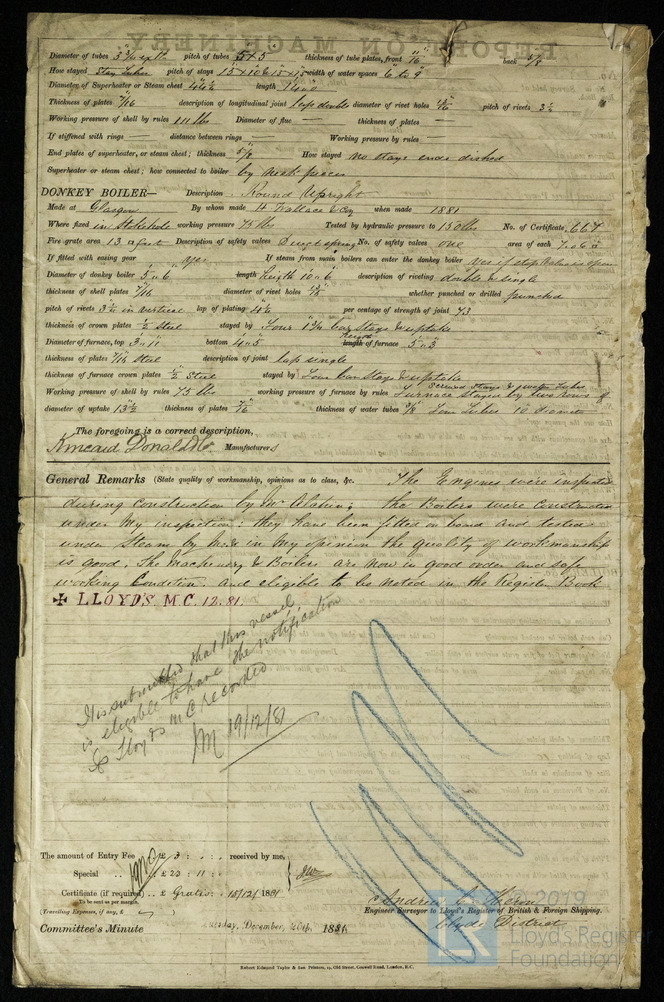 REPORT ON MACHINERY
Diameter of tubes 3¾ pitch of tubes 5x5 thickness of tube plates, front back 5/8
How stayed Stay Tubes pitch of stays width of water spaces 6 to 9
Diameter of Superheater or Steam chest length
Thickness of plates 7/16 description of longitudinal joint Lap double diameter of rivet holes pitch of rivets
Working pressure of shell by rules 111 lbs Diameter of flue — thickness of plates —
If stiffened with rings — distance between rings — Working pressure by rules —
End plates of superheater, or steam chest; thickness 5/8 How stayed no stays ends dished
Superheater or steam chest; how connected to boiler by neck pieces
DONKEY BOILER— Description Round Upright
Made at Glasgow By whom made H Wallace & Coy when made 1881
Where fixed in Stokehole working pressure 75 lbs Tested by hydraulic pressure to 150 lbs No. of Certificate 667
Fire grate area 13 sq feet Description of safety valves Direct spring No. of safety valves one area of each
If fitted with easing gear yes If steam from main boilers can enter the donkey boiler yes if stop valve is open
Diameter of donkey boiler 5" 6 length height 10" 6 description of riveting double & single
thickness of shell plates 7/16 diameter of rivet holes whether punched or drilled punched
pitch of rivets in vertical lap of plating per centage of strength of joint 73
thickness of crown plates ½ Steel stayed by Four bar stays & uptake
Diameter of furnace, top 3" 11 bottom 4" 5 length height of furnace 5" 3
thickness of plates 7/16 Steel description of joint lap single
thickness of furnace crown plates ½ Steel stayed by Four bar stays & uptake
Working pressure of shell by rules 75 lbs working pressure of furnace by rules Furnace stayed by two rows of screwed stays & water tubes
diameter of uptake 13½ thickness of plates 7/16 thickness of water tubes 3/8 Four Tubes 10 diameter
The foregoing is a correct description,
Kincaid Donald & Co. Manufacturers
General Remarks (State quality of workmanship, opinions as to class, &c. The Engines were inspected
during construction by Mr ; the Boilers were constructed
under my inspection: they have been fitted on board and tested
under Steam by me & in my opinion the quality of workmanship
is good. The Machinery & Boilers are now in good order and safe
working condition and eligible to be noted in the Register Book
✠ LLOYD'S M.C. 12.81.
It is submitted that this vessel
is eligible to have the notification
✠ Lloyd's MC recorded
JM 19/12/81
The amount of Entry Fee .. £ 3 : . : . received by me,
Special .. .. £ 23 : 11 : .
Certificate (if required) .. £ Gratis : 15/12/ 1881
To be sent as per margin.
(Travelling Expenses, if any, £ )
Andrew
Engineer Surveyor to Lloyd's Register of British & Foreign Shipping.
Clyde District
Committee's Minute Tuesday, December 20th, 1881
Robert Edmund Taylor & Son Printers, 19, Old Street, Goswell Road, London, E.C.
© 2019
Lloyd's Register
Foundation